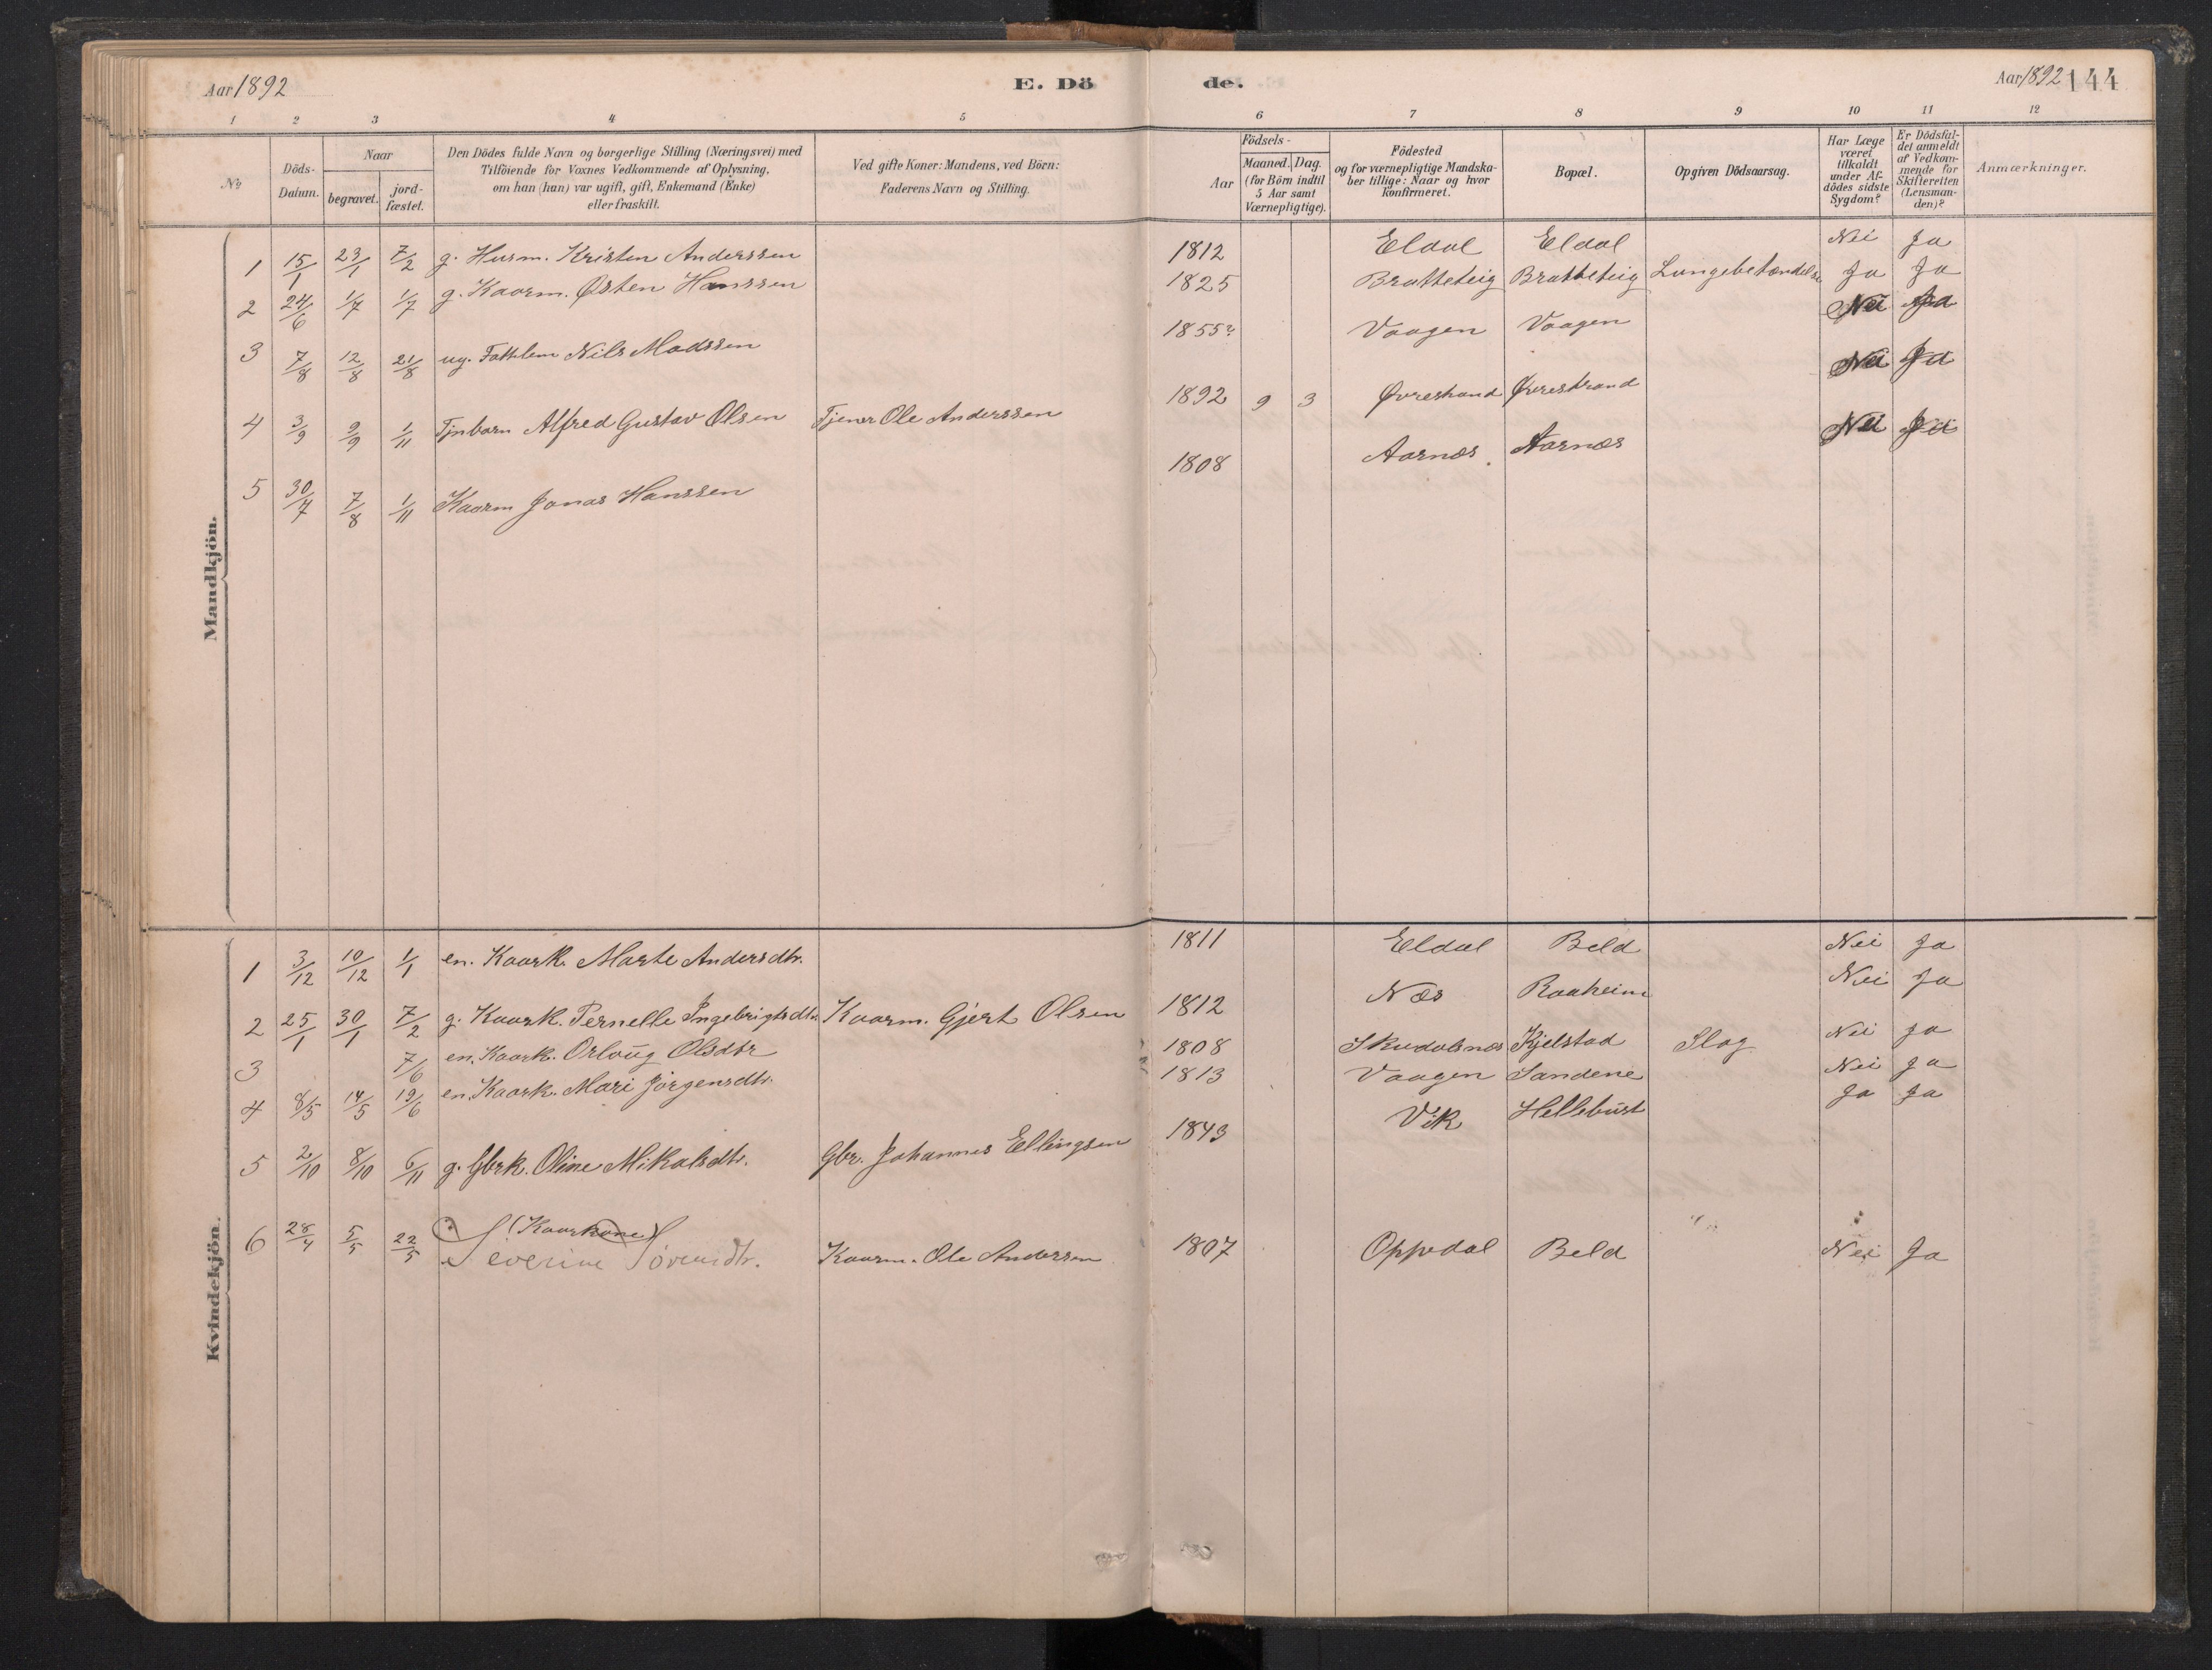 Aar 1892 E. Dö de. Aar 1892 144
1 2 3 4 5 6 7 8 9 10 11 12
No Döds-Datum. Naar begravet. jord-fæstet. Den Dödes fulde Navn og borgerlige Stilling (Næringsvei) med Tilföiende for Voxnes Vedkommende af Oplysning, om han (hun) var ugift, gift, Enkemand (Enke) eller fraskilt. Ved gifte Koner: Mandens, ved Börn: Faderens Navn og Stilling. Födsels- Aar Maaned. Dag. (for Börn indtil 5 Aar samt Værnepligtige). Födested og for værnepligtige Mandskaber tillige: Naar og hvor konfirmeret. Bopæl. Opgiven Dödsaarsag. Har Læge været tilkaldt under Afdödes sidste Sygdom? Er Dödsfaldet anmeldt af Vedkommende for Skifteretten (Lensmanden)? Anmærkninger.
Mandkjön.
1 15/1 23/1 7/2 g. Husm. Kristen Anderssen 1812 Eldal Eldal Nei Ja
2 24/6 1/7 1/7 g. Kaarm. Østen Hanssen 1825 Bratteteig Bratteteig Lungebetændelse Ja Ja
3 7/8 12/8 21/8 ug. Fattlem Nils Madssen 1855? Vaagen Vaagen Nei Ja
4 3/9 9/9 1/11 Tjnbarn Alfred Gustav Olsen Tjener Ole Anderssen 1892 9 3 Øvrestrand Øvrestrand Nei Ja
5 30/7 7/8 1/11 Kaarm Jonas Hanssen 1808 Aarnæs. Aarnæs Nei Ja
Kvindekjön.
1 3/12 10/12 1/1 en. Kaark. Marte Andersdtr. 1811 Eldal Beld Nei Ja
2 25/1 30/1 7/2 g. Kaark. Pernelle Ingebrigtsdtr. Kaarm. Gjert Olsen 1812 Næs Raaheim Nei Ja
3 7/6 en. Kaark. Orloug Olsdtr 1808 Skudalsnæs Kjelstad Slag Nei Ja
4 8/5 14/5 19/6 en. Kaark. Mari Jørgensdtr. 1813 Vaagen Sandene Nei Ja
5 2/10 8/10 6/11 g. Gbrk. Oline Mikalsdtr. Gbr. Johannes Ellingsen 1843 Vik Hellebust Ja Ja
6 28/4 5/5 22/5 (Kaarkone) Severine Sørensdtr. Kaarm. Ole Andersen 1807 Oppedal Beld Nei Ja